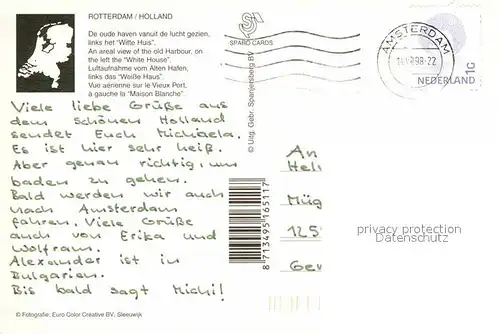 ROTTERDAM / HOLLAND
De oude haven vanuit de lucht gezien,
links het "Witte Huis".
An areal view of the old Harbour, on
the left the "White House".
Luftaufnahme vom Alten Hafen,
links das "Weiße Haus".
Vue aérienne sur le Vieux Port,
à gauche la "Maison Blanche".
Viele liebe Grüße aus
dem schönen Holland
sendet Euch Michaela.
Es ist hier sehr heiß.
Aber genau richtig, um
baden zu gehen.
Bald werden wir auch
nach Amsterdam
fahren. Viele Grüße
auch von Erika und
Wolfram.
Alexander ist in
Bulgarien.
Bis bald sagt Michi!
© Fotografie: Euro Color Creative BV, Sleeuwijk
SPARO CARDS
© Uitg. Gebr. Spanjersberg BV
8 713495 165117
AMSTERDAM
98-22
NEDERLAND
An
Hel
Müg
125
Gev
privacy protection
Datenschutz